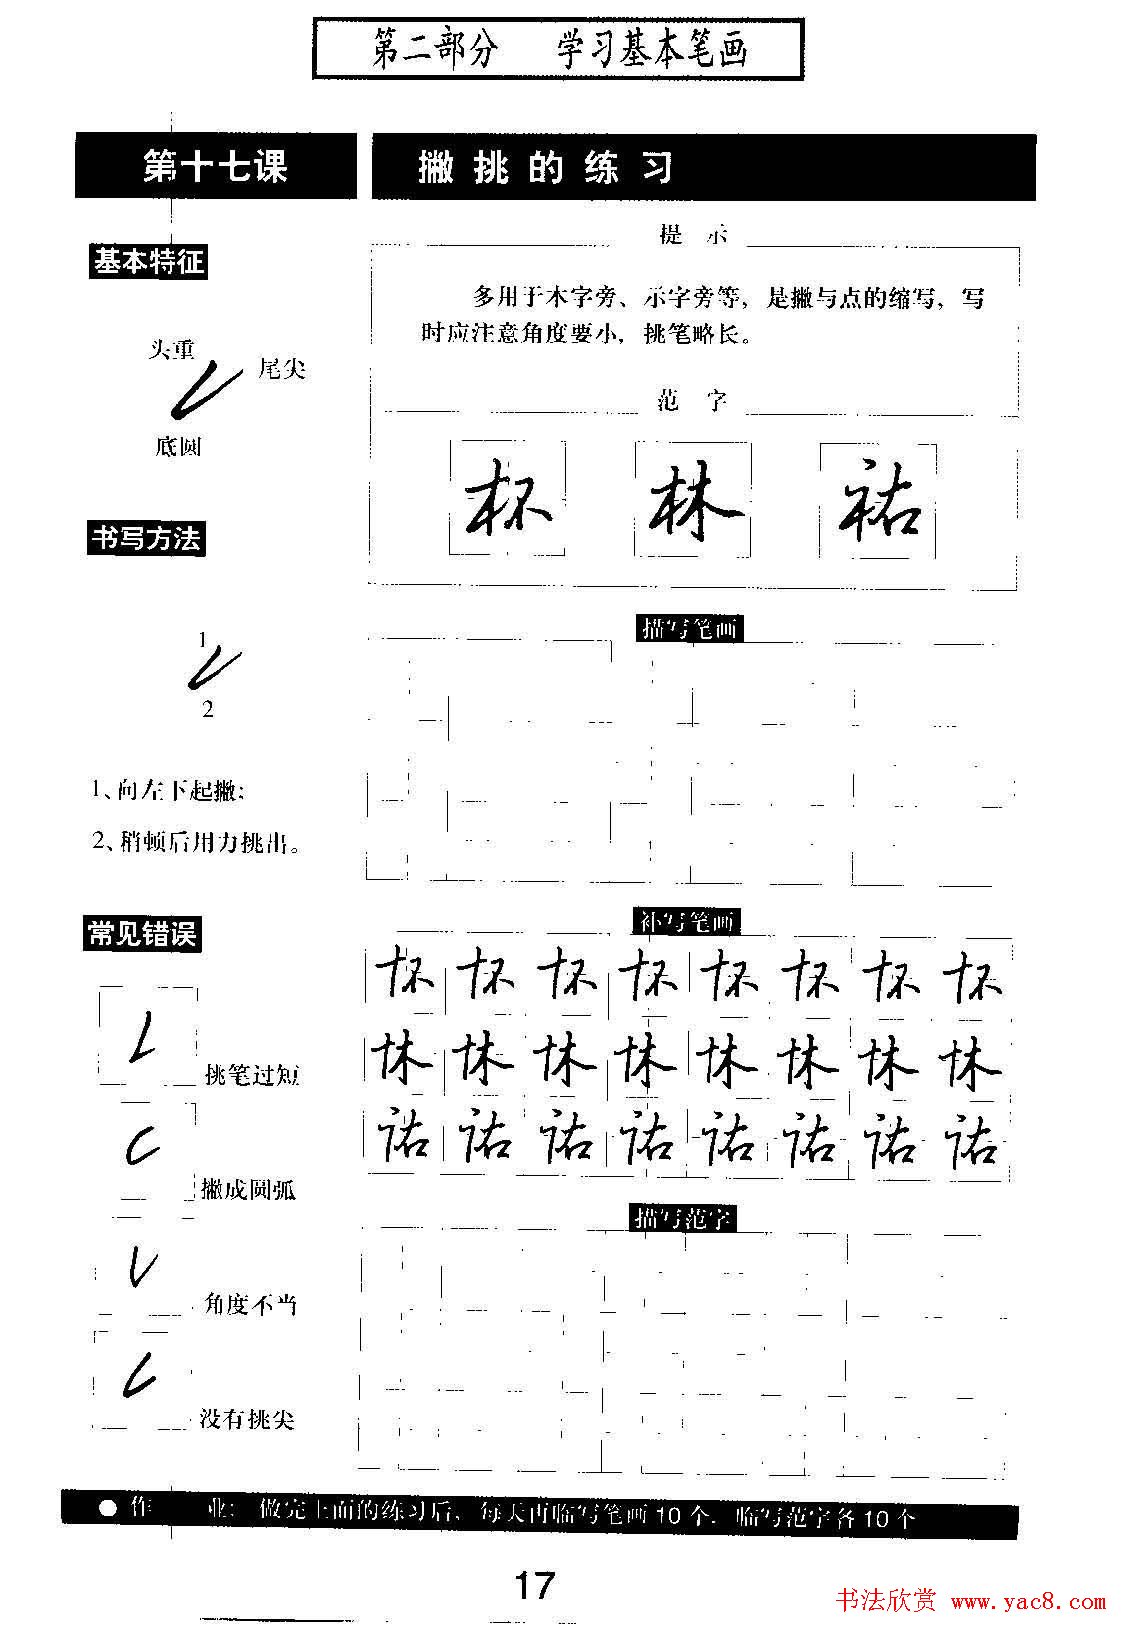 第二部分 学习基本笔画
第十七课 撇挑的练习
基本特征
头重
尾尖
底圆
提示
多用于木字旁、示字旁等，是撇与点的缩写，写
时应注意角度要小，挑笔略长。
范字
杯 林 祐
书写方法
1
2
1、向左下起撇；
2、稍顿后用力挑出。
描写笔画
常见错误
挑笔过短
撇成圆弧
角度不当
没有挑尖
补写笔画
描写范字
● 作 业： 做完上面的练习后，每天再临写笔画10个，临写范字各10个
17
书法欣赏 www.yac8.com